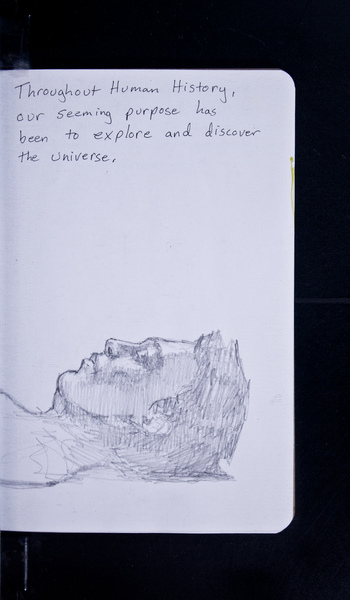 Throughout Human History,
our seeming purpose has
been to explore and discover
the universe,